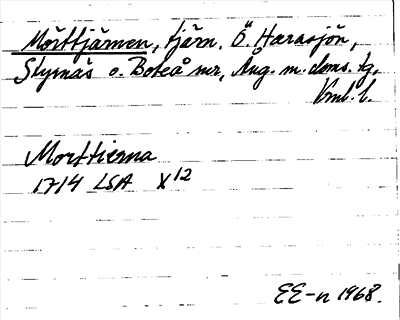 Mörttjärnen, tjärn, Ö. Harasjön,
Styrnäs o. Boteå snr, Ång. m. doms. tg,
Vnl. l.
Morttierna
1714 LSA X12
EE-n 1968.